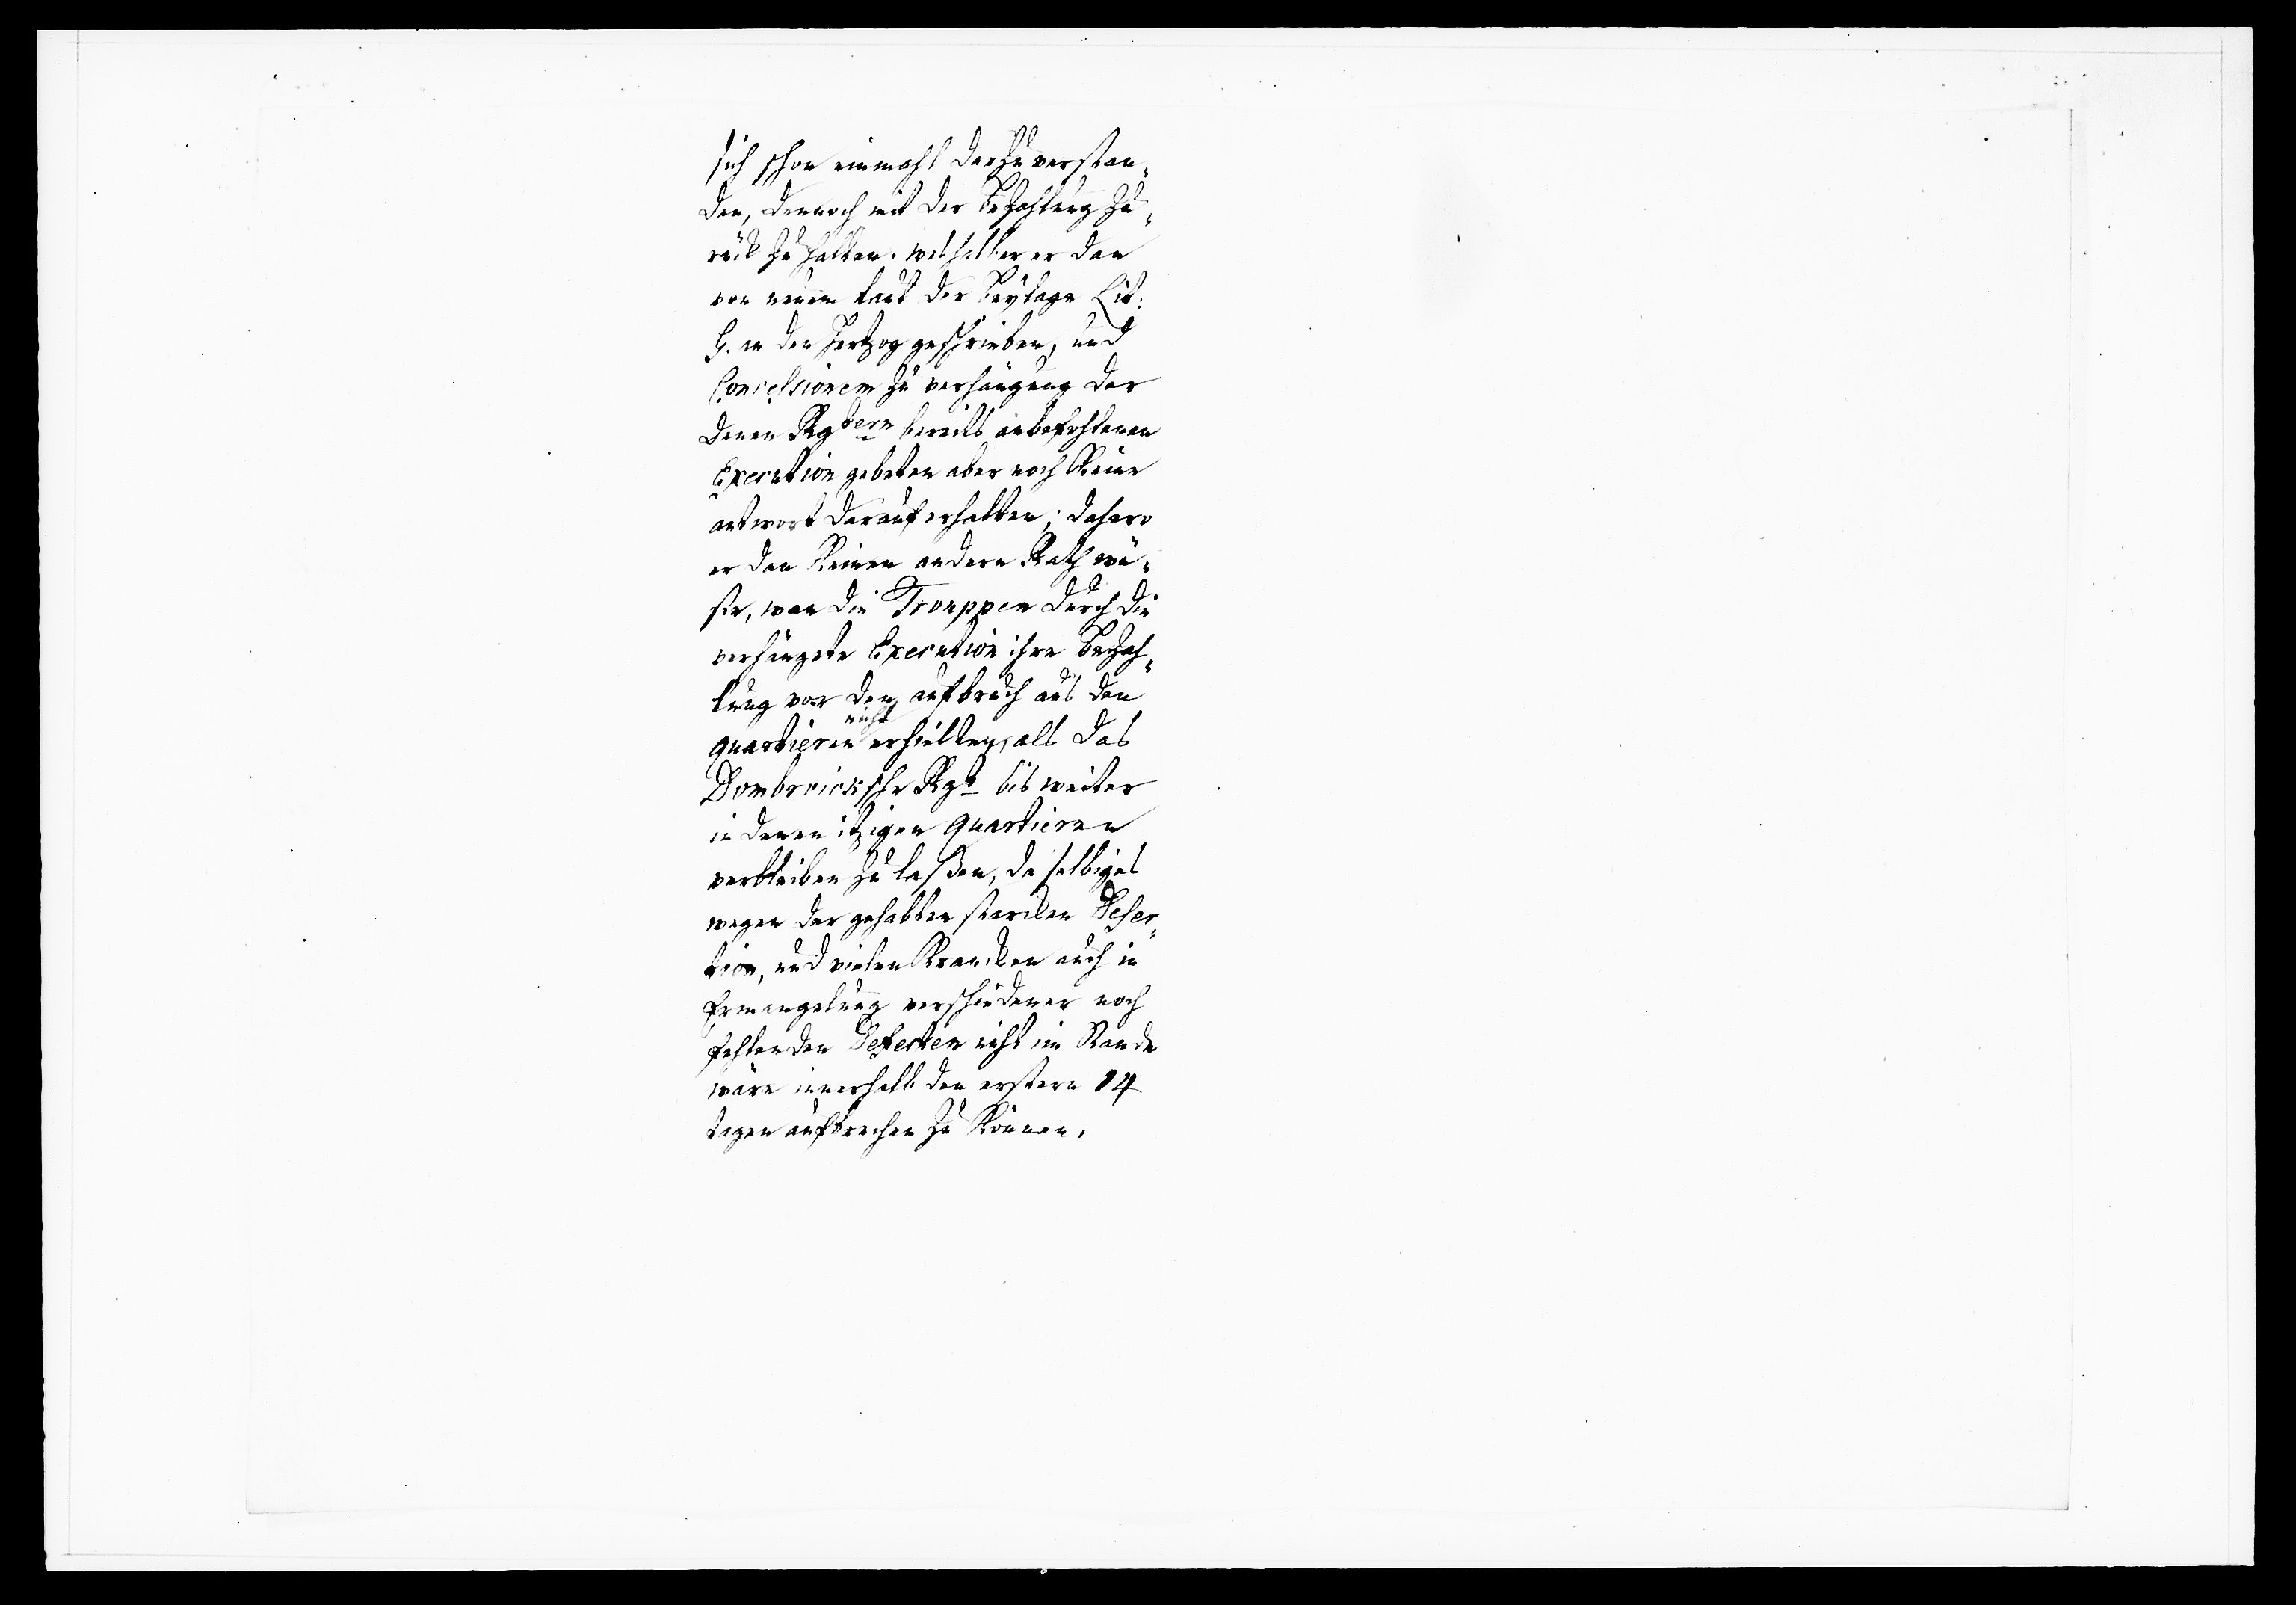 sich schon einmahl darzu verstan„
den, dennoch mit der Bezahlung zu„
rück zu halten. weshalber er dan
von neuem laut der Beylage Lit:
G. an den Hertzog geschrieben, und
Concessionem zu verhängung der
denen Rgtern bereits anbefohlenen
Execution gebeten aber noch Keine
antwort darauf erhalten; dahero
er dan Keinen andern Rath wü„
ste, wan die Trouppen durch die
verhängete Execution ihre Bezah„
lung vor den aufbruch aus den
quartieren nicht erhielten, als das
Dombroicksche Rgt bis weiter
in denen itzigen quartieren
verbleiben zu laßen, da selbiges
wegen der gehabten starcken Deser„
tion, und vielen Krancken auch in
Ermangelung verschiedener noch
fehlenden Defecten nicht im Stande
wäre innerhalb den erstern 14
tagen aufbrechen zu Können.